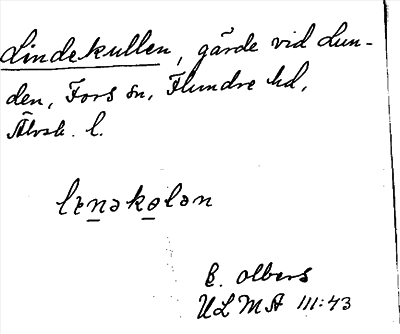 Lindekullen, gärde vid Lun-
den, Fors sn, Flundre hd,
Älvsb. l.
lɪnəkɵlən
E. Olbers
ULMA III:43